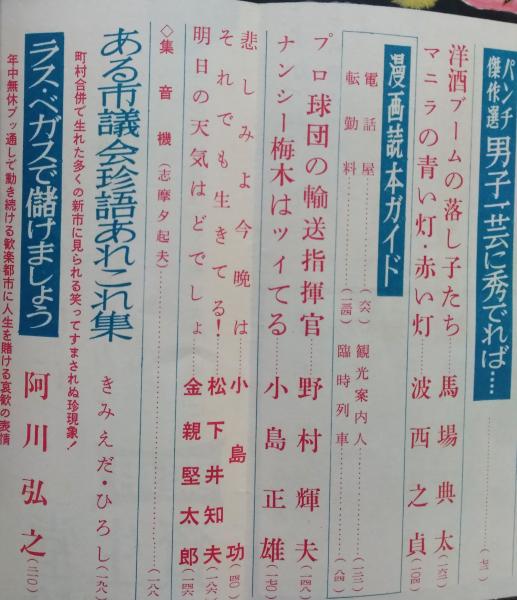 パンチ傑作選 男子一芸に秀でれば‥‥(七三)
洋酒ブームの落し子たち 馬場典太(一六二)
マニラの青い灯・赤い灯 波西之貞(一〇四)
漫画読本ガイド
電話屋(六六) 観光案内人(一二三)
転勤料(一三四) 臨時列車(八四)
プロ球団の輸送指揮官 野村輝夫(一四八)
ナンシー梅木はツイてる 小島正雄(一七〇)
悲しみよ今晩は 小島功(四〇)
それでも生きてる! 松下井知夫(一八六)
明日の天気はどでしょ 金親堅太郎(一四六)
◇集音機(志摩夕起夫)(一八八)
ある市議会珍語あれこれ集 きみえだ・ひろし(一九八)
町村合併で生れた多くの新市に見られる笑ってすまされぬ珍現象!
ラス・ベガスで儲けましょう 阿川弘之(二一〇)
年中無休ブッ通しで動き続ける歓楽都市に人生を賭ける哀歓の表情